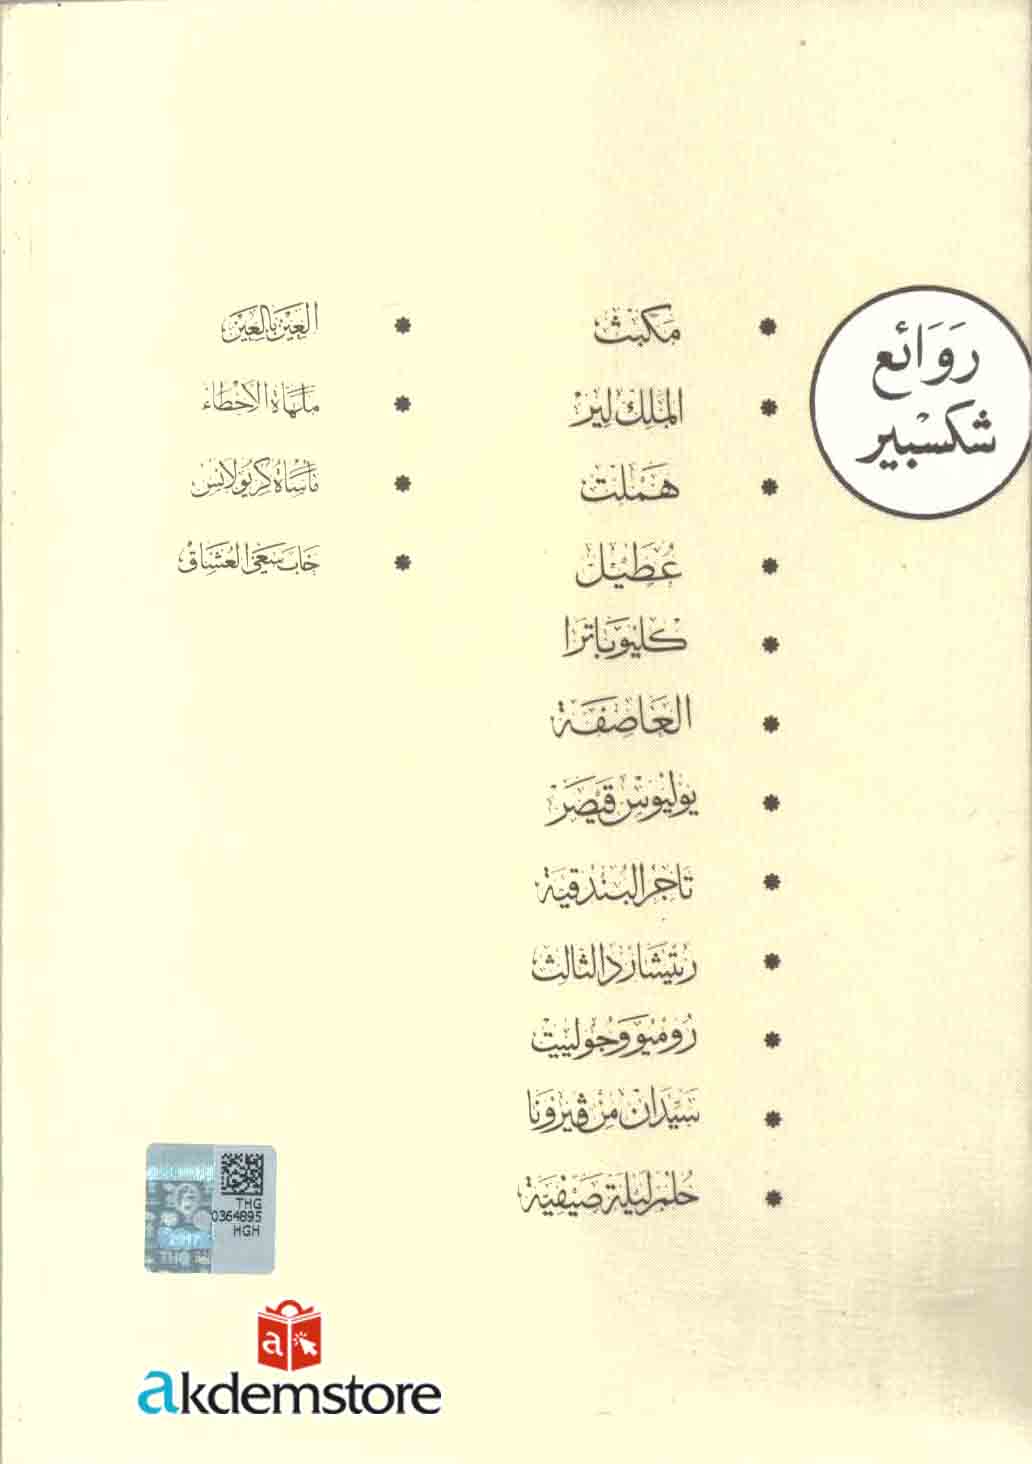 رَوَائع
شكسبير
مَكبث
الملِك لير
هَملت
عُطَيْل
كليوباترا
العَاصِفَة
يوليوس قيْصَر
تاجر البُندقيَة
ريتشارد الثالث
رُوميو وجُولييت
سَيّدان من ڤيرونا
حُلم ليلة صَيفيَة
العَين بالعَين
ملهَاة الأخطاء
مأسَاة كريولانس
خابَ سَعَى العُشاق
THG
0364895
HGH
2017
THG
akdemstore